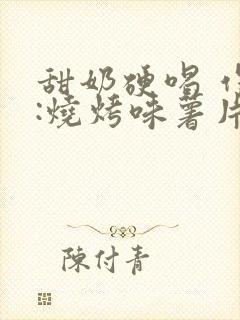 甜奶硬唱
:燒烤味薯片
陳付青